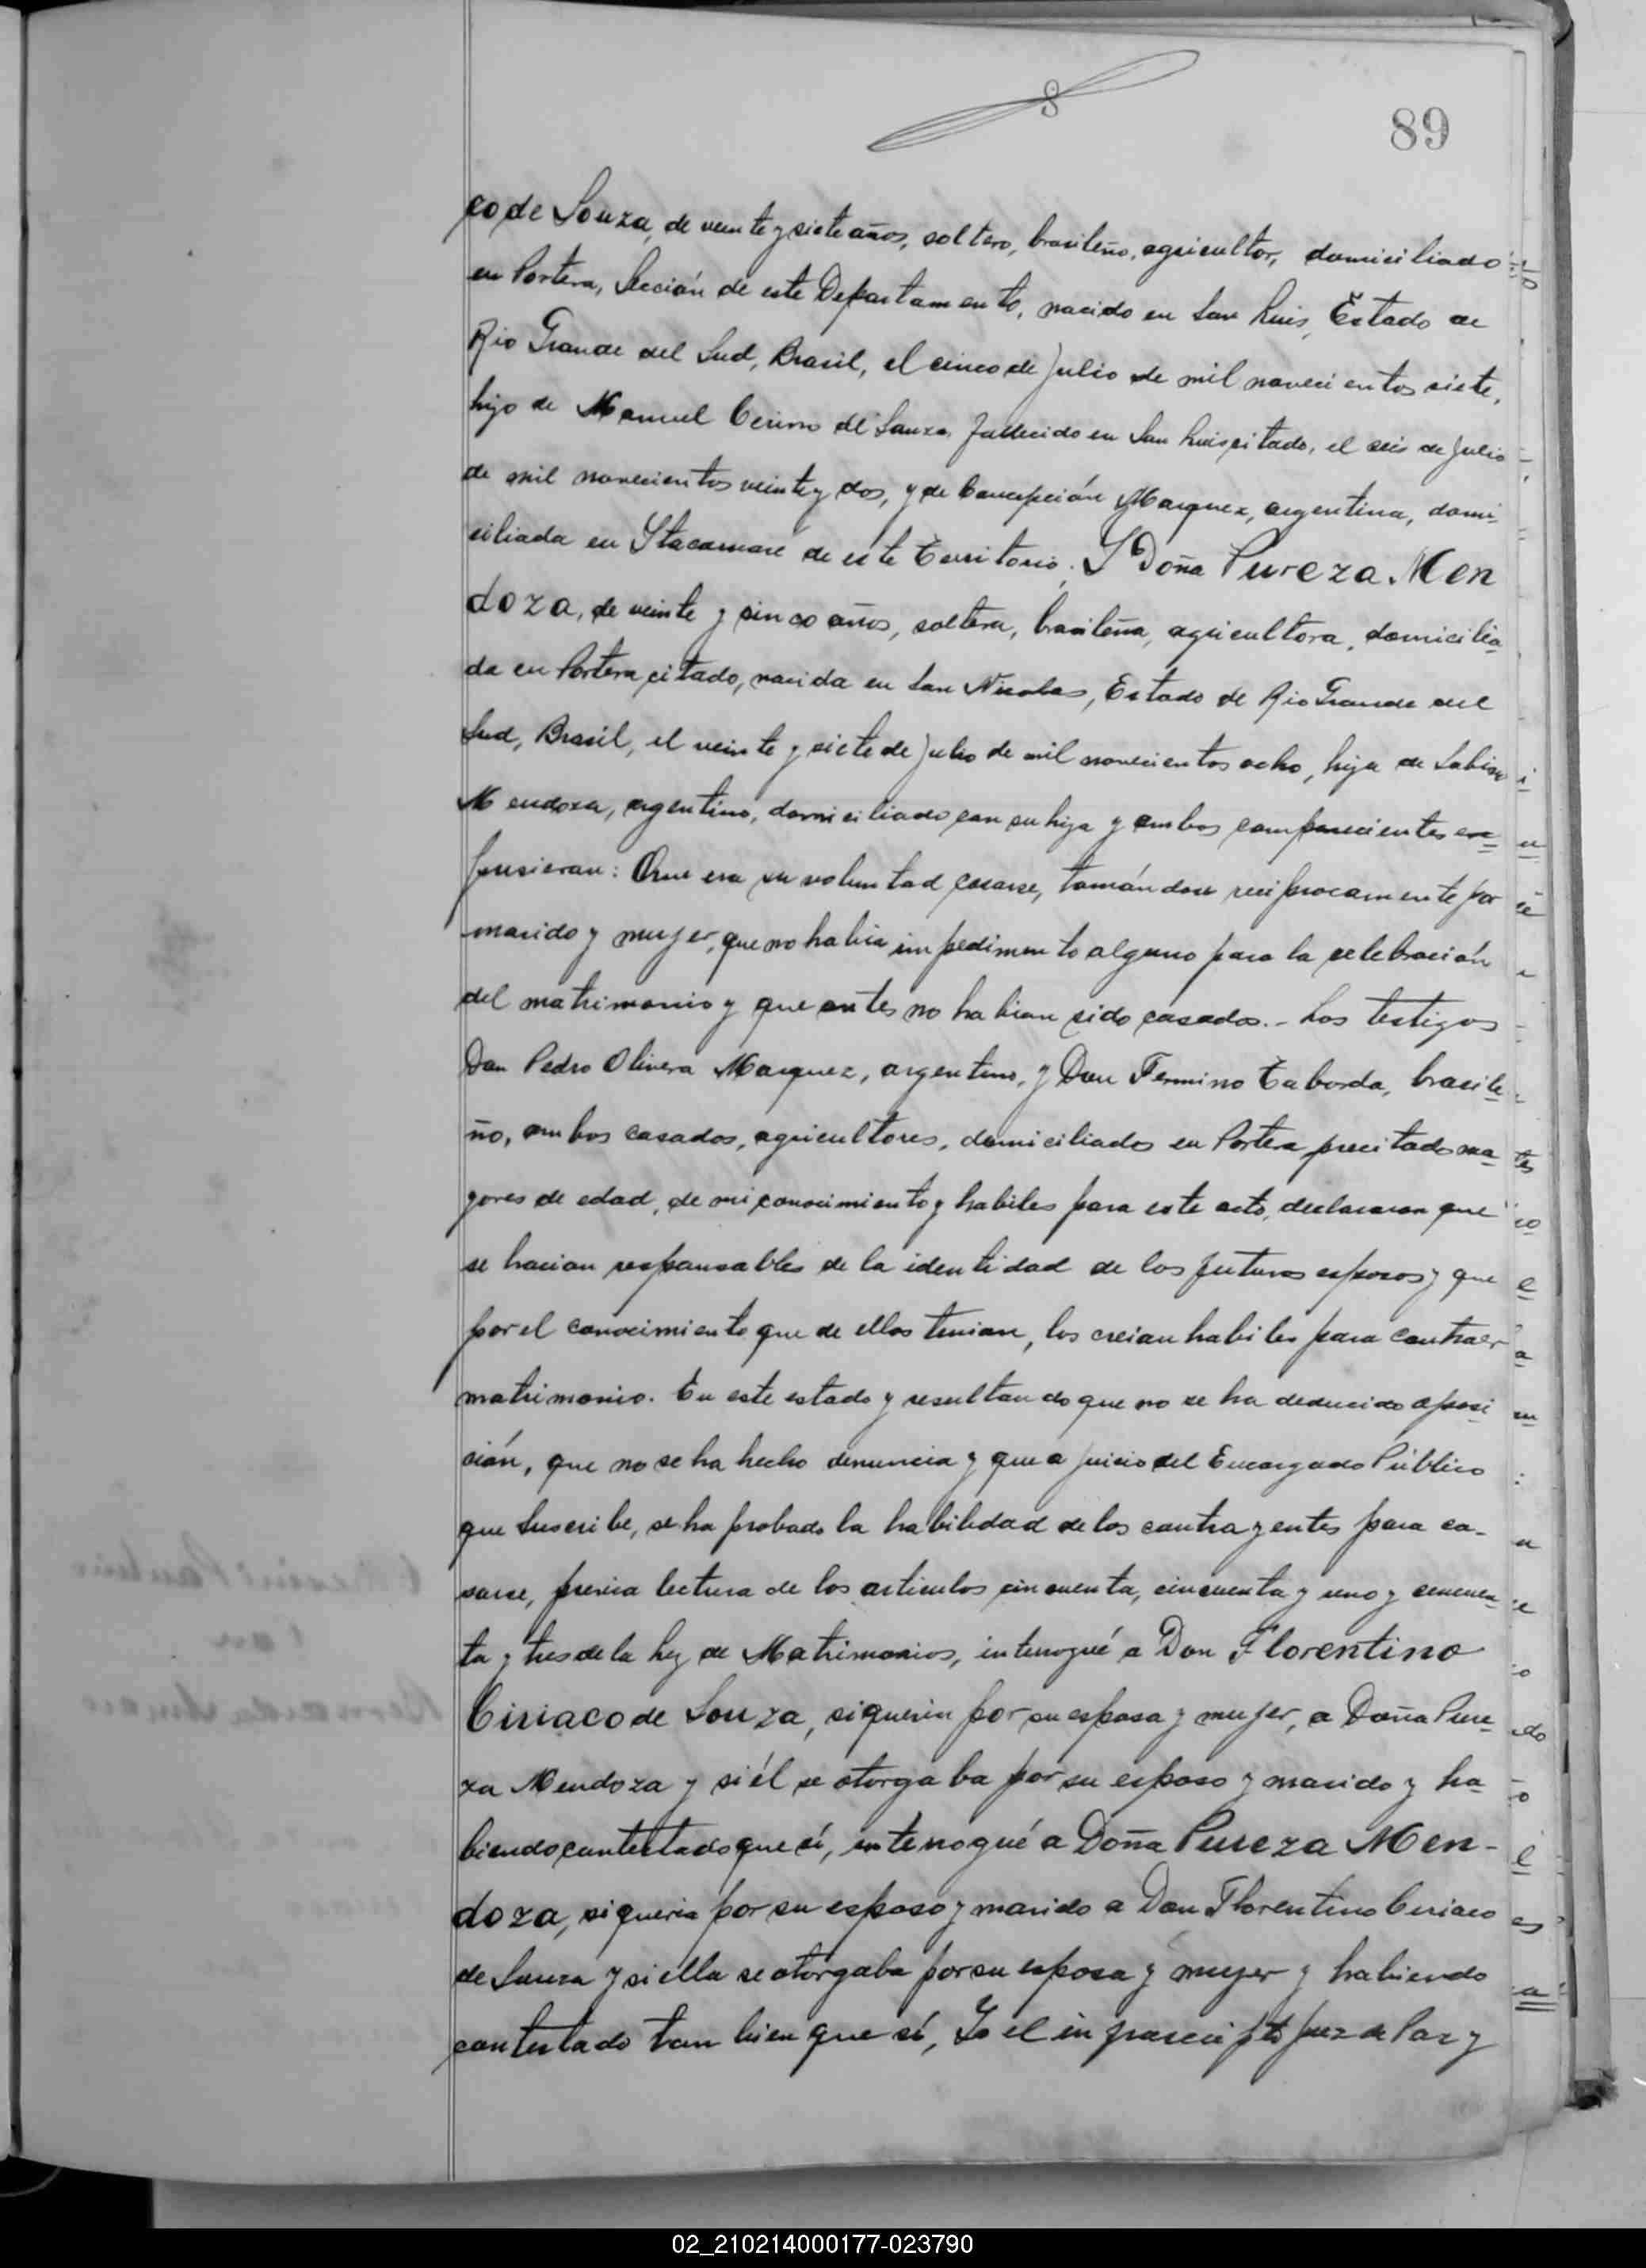 8
89
co de Souza, de veinte y siete años, soltero, brasileño, agricultor, domiciliado
en Portera, Sección de este Departamento, nacido en San Luis, Estado de
Rio Grande del Sud, Brasil, el cinco de Julio de mil novecientos siete,
hijo de Manuel de Souza, fallecido en San Luis citado, el seis de Julio
de mil novecientos veinte y dos, y de Concepción Marquez, argentina, domi-
ciliada en Itacaruaré de este Territorio; Y Doña Pureza Men
doza, de veinte y cinco años, soltera, brasileña, agricultora, domicilia
da en Portera citado, nacida en San Nicolas, Estado de Rio Grande del
Sud, Brasil, el veinte y siete de Julio de mil novecientos ocho, hija de Sabino
Mendoza, argentino, domiciliado con su hija y ambos comparecientes ex-
pusieran: Que era su voluntad casarse, tomándose reciprocamente por
marido y mujer, que no habia impedimento alguno para la celebración
del matrimonio y que antes no habian sido casados.- Los testigos
Don Pedro Olivera Marquez, argentino, y Don Fermino Taborda, brasile-
ño, ambos casados, agricultores, domiciliados en Portera precitado ma-
yores de edad, de mi conocimiento y habiles para este acto, declararon que
se hacian responsables de la identidad de los futuros esposos y que
por el conocimiento que de ellos tenian, los creian habiles para contraer
matrimonio. En este estado y resultando que no se ha deducido oposi
ción, que no se ha hecho denuncia y que a juicio del Encargado Público
que Suscribe, se ha probado la habilidad de los contrayentes para ca-
sarse, previa lectura de los articulos cincuenta, cincuenta y uno y cincuen-
ta y tres de la Ley de Matrimonios, interrogué a Don Florentino
Ciriaco de Souza, si queria por su esposa y mujer, a Doña Pure-
za Mendoza y si él se otorgaba por su esposo y marido y ha-
biendo contestado que sí, interrogué a Doña Pureza Men-
doza, si queria por su esposo y marido a Don Florentino Ciriaco
de Souza y si ella se otorgaba por su esposa y mujer y habiendo
contestado tambien que sí, Yo el infrascripto Juez de Paz y
02_210214000177-023790